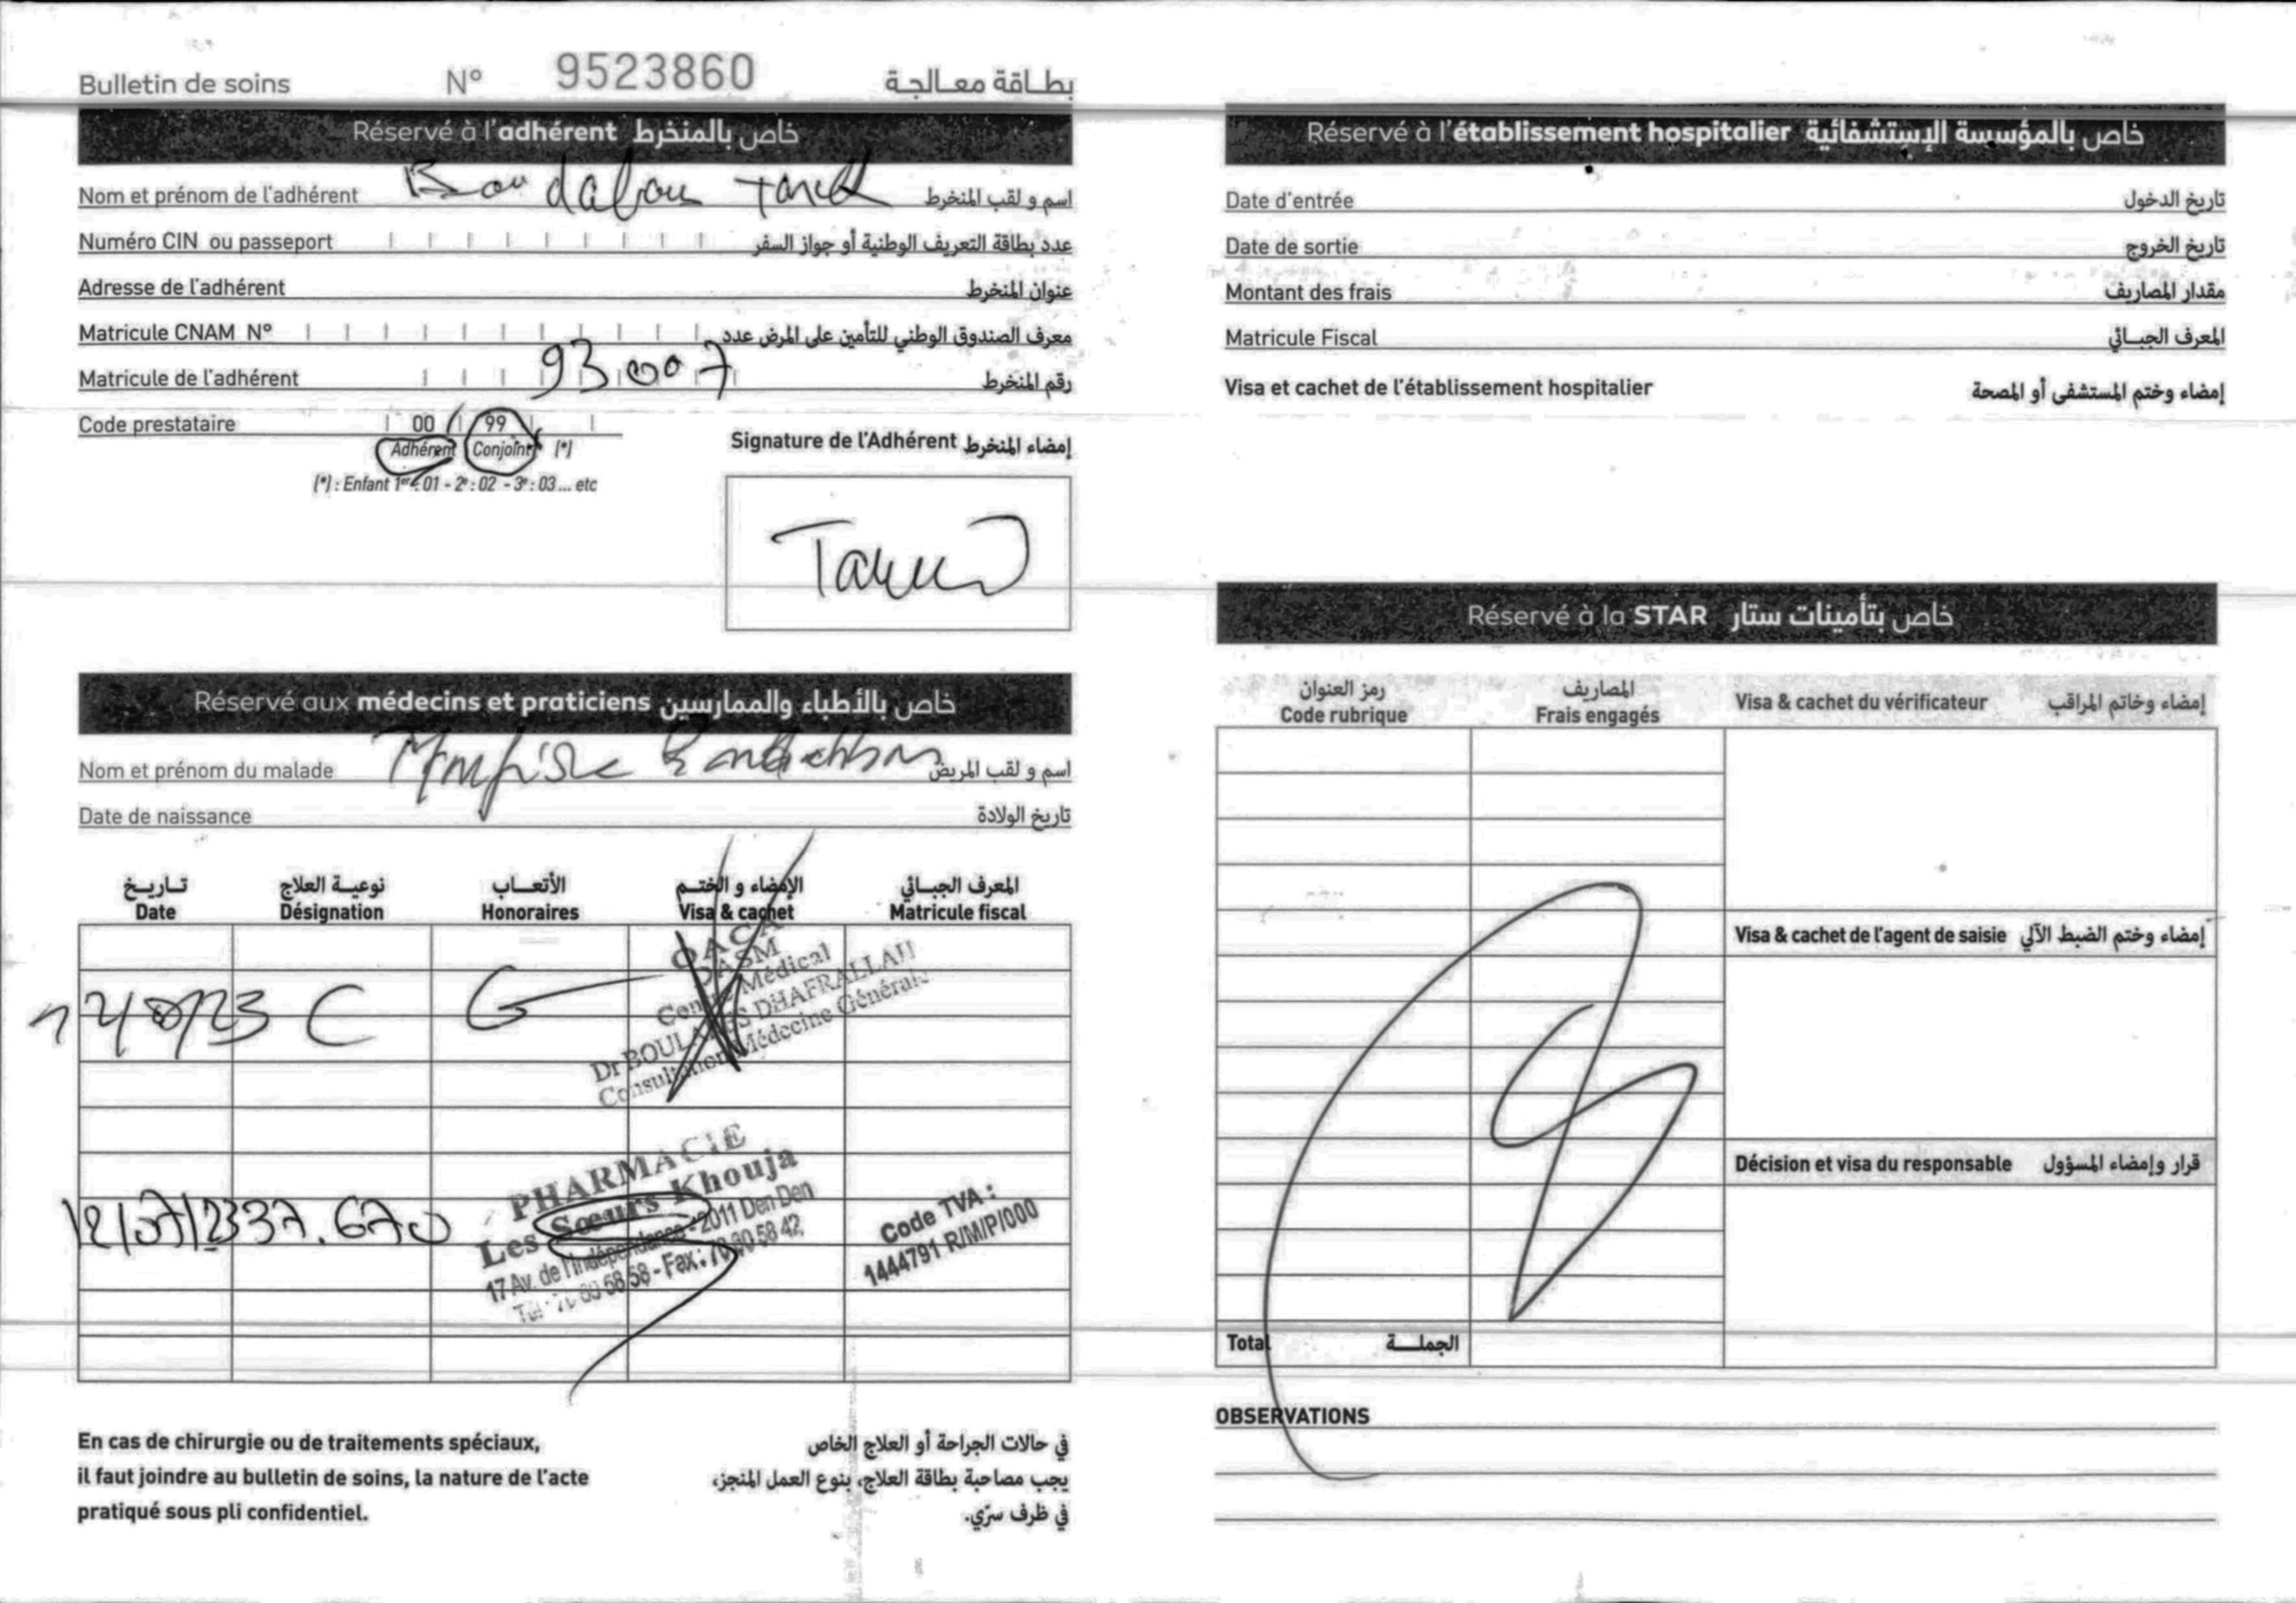 Bulletin de soins N° 9523860 بطاقة معالجة
Réservé à l'adhérent خاص بالمنخرط
Nom et prénom de l'adhérent اسم و لقب المنخرط
Numéro CIN ou passeport عدد بطاقة التعريف الوطنية أو جواز السفر
Adresse de l'adhérent عنوان المنخرط
Matricule CNAM N° معرف الصندوق الوطني للتأمين على المرض عدد
Matricule de l'adhérent 93007 رقم المنخرط
Code prestataire 00 99
Adhérent Conjoint (*)
(*) : Enfant 1er : 01 - 2e : 02 - 3e : 03 ... etc
Signature de l'Adhérent إمضاء المنخرط
Réservé aux médecins et praticiens خاص بالأطباء والممارسين
Nom et prénom du malade اسم و لقب المريض
Date de naissance تاريخ الولادة
تاريخ نوعية العلاج الأتعاب الإمضاء و الختم المعرف الجبائي
Date Désignation Honoraires Visa & cachet Matricule fiscal
C G
OACA
DASM
Centre Médical
DHAFRALLAH
Consultation Médecine Générale
12/07/23 37.670
PHARMACIE
Les Sœurs Khouja
17 Av. de l'indépendance - 2011 Den Den
Code TVA :
1444791 R/M/P/000
En cas de chirurgie ou de traitements spéciaux,
il faut joindre au bulletin de soins, la nature de l'acte
pratiqué sous pli confidentiel.
في حالات الجراحة أو العلاج الخاص
يجب مصاحبة بطاقة العلاج، بنوع العمل المنجز،
في ظرف سرّي.
Réservé à l'établissement hospitalier خاص بالمؤسسة الإستشفائية
Date d'entrée تاريخ الدخول
Date de sortie تاريخ الخروج
Montant des frais مقدار المصاريف
Matricule Fiscal المعرف الجبائي
Visa et cachet de l'établissement hospitalier إمضاء وختم المستشفى أو المصحة
Réservé à la STAR خاص بتأمينات ستار
رمز العنوان المصاريف
Code rubrique Frais engagés
Visa & cachet du vérificateur إمضاء وخاتم المراقب
Visa & cachet de l'agent de saisie إمضاء وختم الضبط الآلي
Décision et visa du responsable قرار وإمضاء المسؤول
Total الجملة
OBSERVATIONS